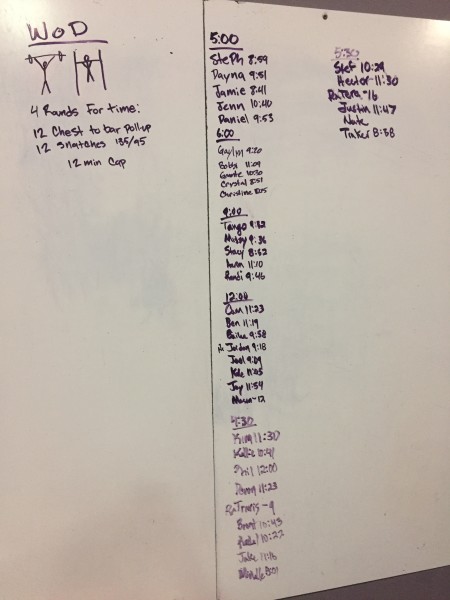 WOD
4 Rounds For time:
12 Chest to bar pullup
12 snatches 135/95
12 min Cap
5:00
Steph 8:59
Dayna 9:51
Jamie 8:41
Jenn 10:40
Daniel 9:53
6:00
Gaylyn 9:20
Bobby 11:09
10:30
Crystal 8:51
Christine 8:05
9:00
Tango 9:32
9:36
Stacy 8:52
11:10
Randi 9:46
12:00
11:23
Ben 11:19
9:58
Jordan 9:18
Joel 9:09
Kyle 11:05
Jay 11:54
-12
4:30
King 11:30
Kellie 10:41
Phil 12:00
11:23
Rx Travis - 9
Brent 10:43
10:22
Jake 11:16
8:01
5:30
Stef 10:29
Hector 11:30
Tera - 16
Justin 11:47
Nate
Tinker 8:58